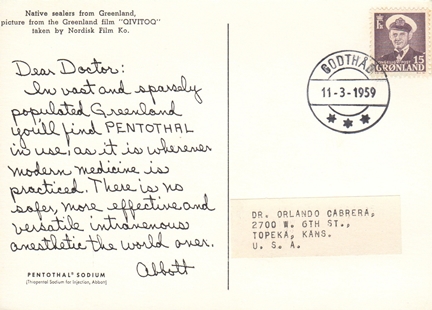 Native sealers from Greenland,
picture from the Greenland film "QIVITOQ"
taken by Nordisk Film Ko.
Dear Doctor:
In vast and sparsely
populated Greenland
you'll find PENTOTHAL
in use, as it is wherever
modern medicine is
practiced. There is no
safer, more effective and
versatile intravenous
anesthetic the world over.
Abbott
PENTOTHAL® SODIUM
(Thiopental Sodium for Injection, Abbott)
GODTHÅB
11-3-1959
15
GRØNLAND
DR. ORLANDO CABRERA,
2700 W. 6TH ST.,
TOPEKA, KANS.
U. S. A.